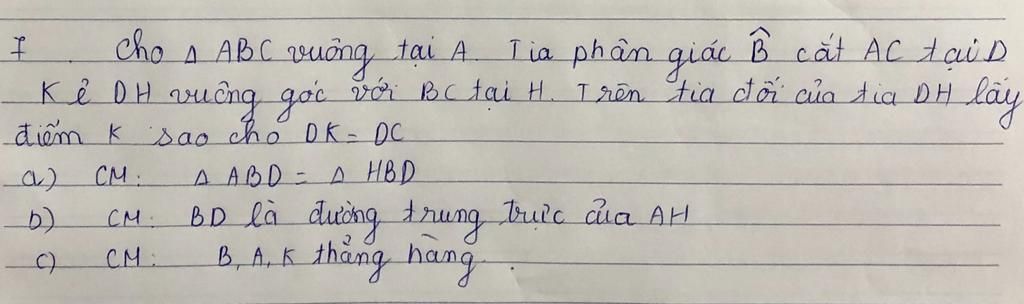 I. Cho Δ ABC vuông tại A. Tia phân giác B̂ cắt AC tại D
Kẻ DH vuông góc với BC tại H. Trên tia đối của tia DH lấy
điểm K sao cho DK = DC
a) CM: Δ ABD = Δ HBD
b) CM: BD là đường trung trực của AH
c) CM: B, A, K thẳng hàng.